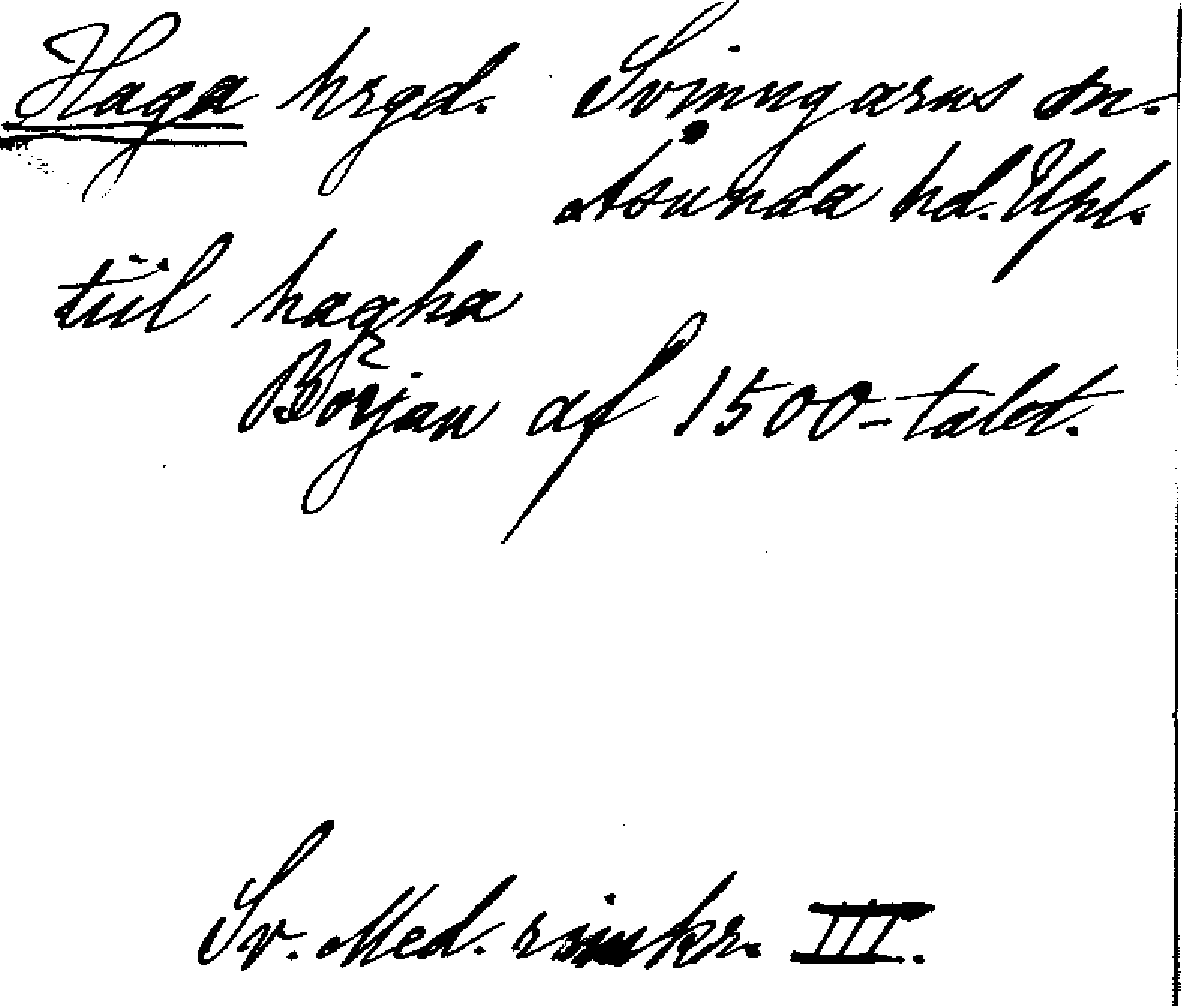 Haga hrgd. Svinngarns sn.
Åsunda hd. Upl.
tiil hagha
Början af 1500-talet.
Sv. Med. rimkr. III.